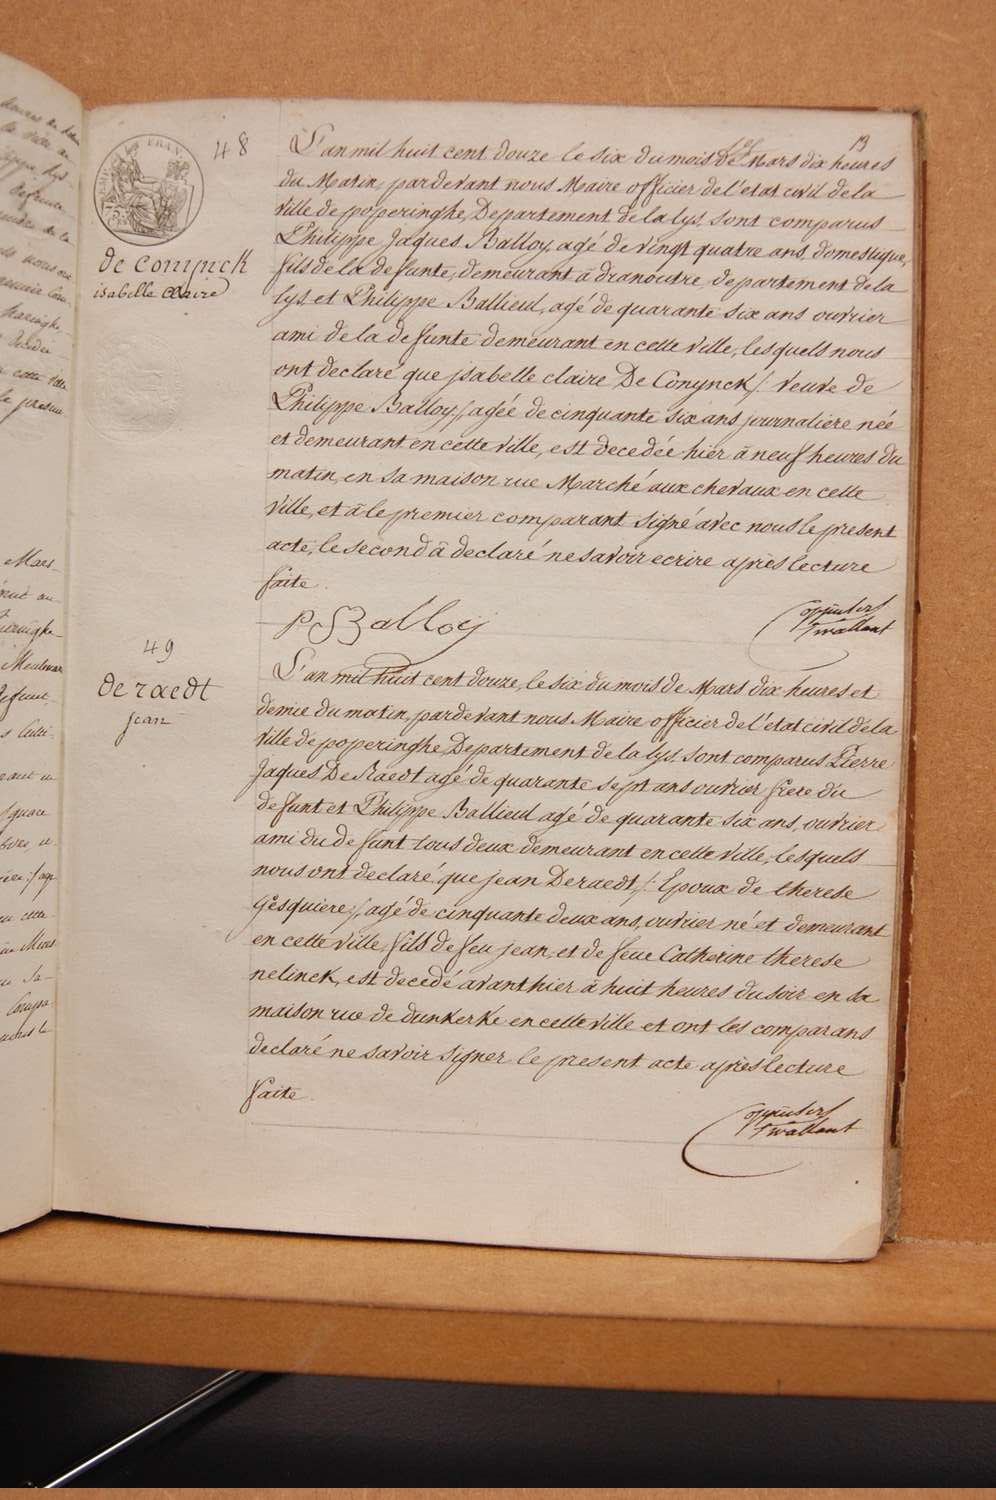 13
48
de Conijnck
isabelle Claire
L'an mil huit cent douze le six du mois de Mars dix heures
du Matin, pardevant nous Maire officier de l'etat civil de la
ville de poperinghe, Departement de la lys, sont comparus
Philippe Jaques Balloy, agé de vingt quatre ans, domestique,
fils de la defunte, demeurant à dranoutre departement de la
lys et Philippe Ballieul, agé de quarante six ans ouvrier
ami de la defunte demeurant en cette ville, lesquels nous
ont declaré que jsabelle claire De Conynck /: veuve de
Philippe Balloy :/ agée de cinquante six ans journaliere née
et demeurant en cette ville, est decedée hier à neuf heures du
matin, en sa maison rue Marché aux chevaux en cette
ville, et à le premier comparant signé avec nous le present
acte, le second à declaré ne savoir ecrire après lecture
faite.
P J Balloij
49
de raedt
jean
L'an mil huit cent douze, le six du mois de Mars dix heures et
demie du matin, pardevant nous Maire officier de l'etat civil de la
ville de poperinghe, Departement de la lys, sont comparus Pierre
Jaques De Raedt agé de quarante sept ans ouvrier frere du
defunt et Philippe Ballieul agé de quarante six ans, ouvrier
ami du defunt tous deux demeurant en cette ville, lesquels
nous ont declaré que jean Deraedt /: Epoux de therese
Gesquiere :/, agé de cinquante deux ans, ouvrier né et demeurant
en cette ville, fils de feu jean, et de feue Catherine therese
nelinck, est decedé avant hier à huit heures du soir en sa
maison rue de dunkerke en cette ville et ont les comparans
declaré ne savoir signer le present acte après lecture
faite.